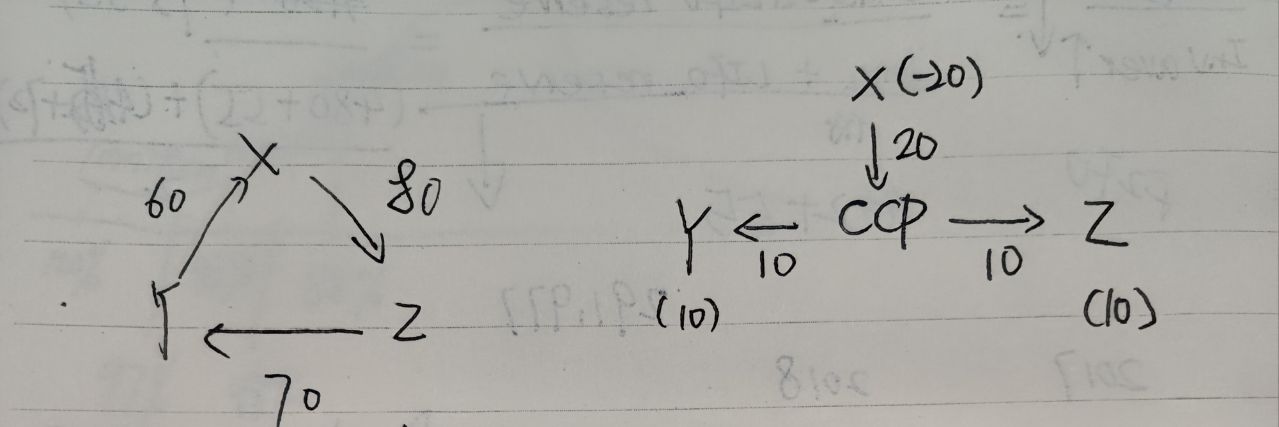 X (-20)
20
X
60
80
Y ← CCP → Z
10
10
Y
Z
(10)
(10)
70